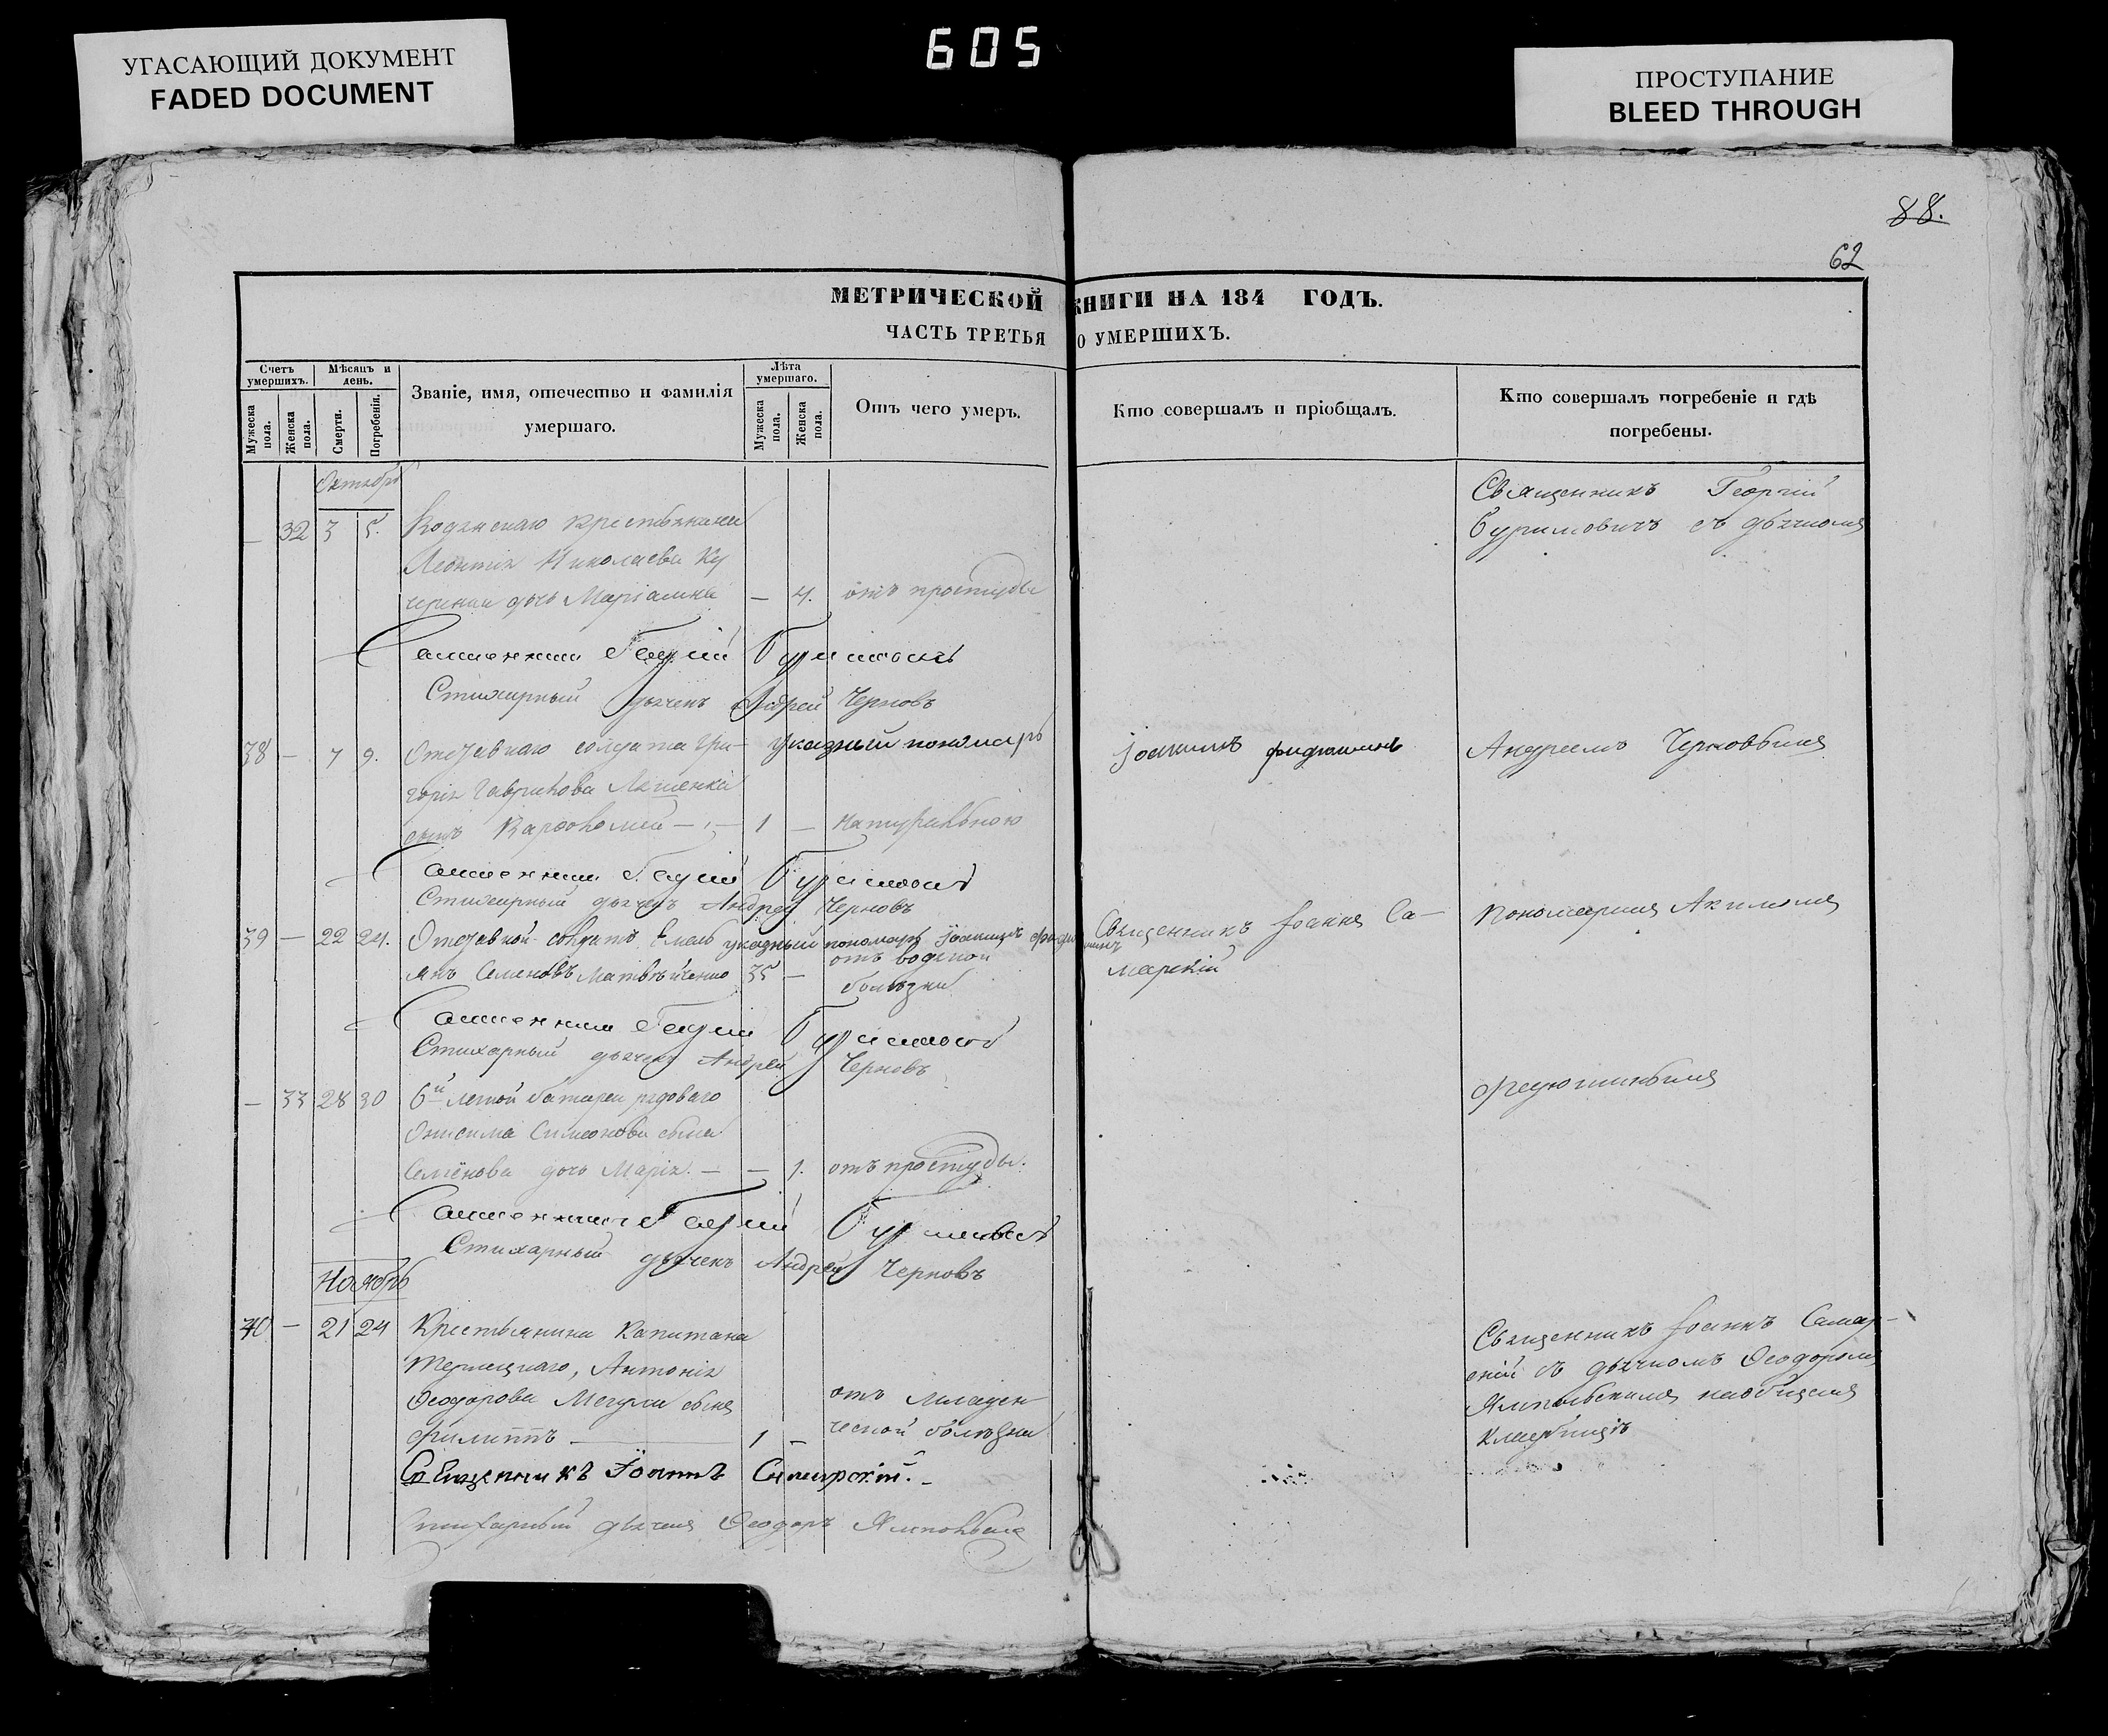 УГАСАЮЩИЙ ДОКУМЕНТ
FADED DOCUMENT
605
ПРОСТУПАНИЕ
BLEED THROUGH
88.
62
МЕТРИЧЕСКОЙ КНИГИ НА 184 ГОДЪ.
ЧАСТЬ ТРЕТЬЯ О УМЕРШИХЪ.
Счетъ умершихъ.
Мужеска пола.
Женска пола.
Мѣсяцъ и день.
Смерти.
Погребенія.
Званіе, имя, отечество и фамилія умершаго.
Лѣта умершаго.
Мужеска пола.
Женска пола.
Отъ чего умеръ.
Кто совершалъ и пріобщалъ.
Кто совершалъ погребеніе и гдѣ погребены.
Октябрь
Священникъ Георгій
— 32 3 5. крестьянина
съ дьячкомъ
Леонтія Николаева Ку
дочь — 4. отъ простуды
Стихарный дьячекъ Андрей Черновъ
38 — 7 9. Отставнаго солдата Гри-
указный пономарь Іоакимъ
Андреемъ Черновымъ
горія Гаврилова
сынъ Варфоломей 1 — натуральною
Стихарный дьячекъ Андрей Черновъ
39 — 22 24. Отставной солдатъ Емель
указный пономарь Іоакимъ
Священникъ Іоаннъ Са-
Пономаремъ Акимомъ
янъ Семеновъ Матвѣйченко 35 —
отъ водяной
болѣзни
марскій
Стихарный дьячекъ Андрей Черновъ
— 33 28 30 6й легкой батареи рядоваго
Федюшинымъ
Онисима Симеонова сына
Семёнова дочь Марія. — — 1. отъ простуды.
Стихарный дьячекъ Андрей Черновъ
Ноябрь
40 — 21 24 Крестьянина Капитана
Священникъ Іоаннъ Самар-
Антонія
скій съ дьячкомъ Ѳеодоромъ
Ѳеодорова сынъ
отъ младен
Ямпольскимъ на общемъ
Филиппъ 1 —
ческой болѣзни
кладбищѣ
Священникъ Іоаннъ Самарскій.
Стихарный дьячекъ Ѳеодоръ